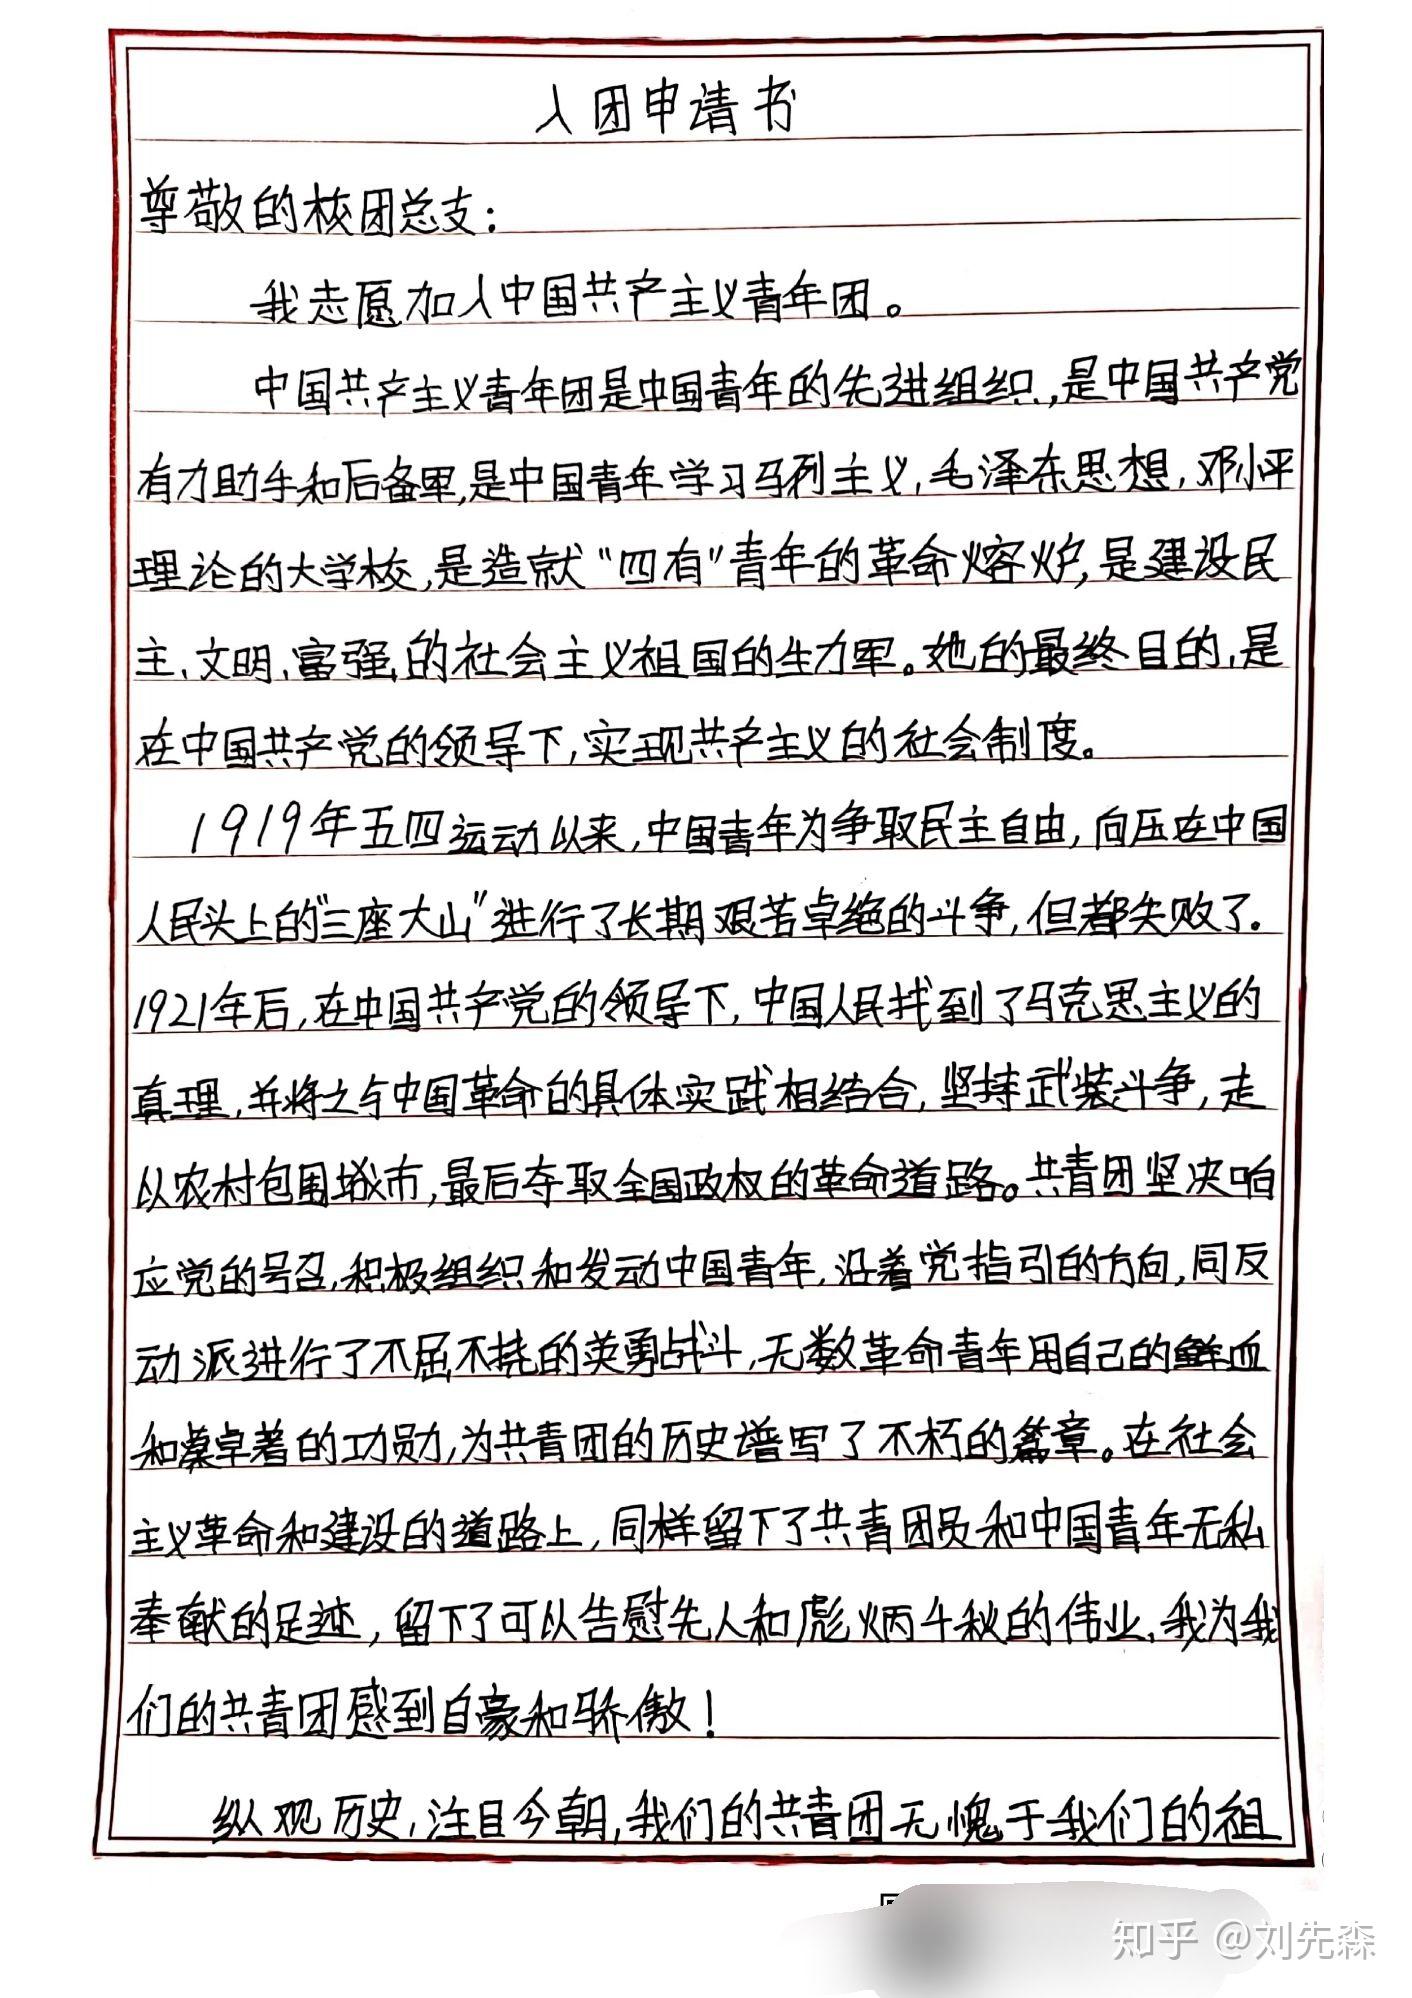 入团申请书
尊敬的校团总支：
我志愿加入中国共产主义青年团。
中国共产主义青年团是中国青年的先进组织，是中国共产党
有力助手和后备军，是中国青年学习马列主义，毛泽东思想，邓小平
理论的大学校，是造就“四有”青年的革命熔炉，是建设民
主、文明、富强的社会主义祖国的生力军。她的最终目的，是
在中国共产党的领导下，实现共产主义的社会制度。
1919年五四运动以来，中国青年为争取民主自由，向压在中国
人民头上的“三座大山”进行了长期艰苦卓绝的斗争，但都失败了。
1921年后，在中国共产党的领导下，中国人民找到了马克思主义的
真理，并将之与中国革命的具体实践相结合，坚持武装斗争，走
以农村包围城市，最后夺取全国政权的革命道路。共青团坚决响
应党的号召，积极组织和发动中国青年，沿着党指引的方向，同反
动派进行了不屈不挠的英勇战斗，无数革命青年用自己的鲜血
和卓著的功勋，为共青团的历史谱写了不朽的篇章。在社会
主义革命和建设的道路上，同样留下了共青团员和中国青年无私
奉献的足迹，留下了可以告慰先人和彪炳千秋的伟业，我为我
们的共青团感到自豪和骄傲！
纵观历史，注目今朝，我们的共青团无愧于我们的祖
知乎 @刘先森